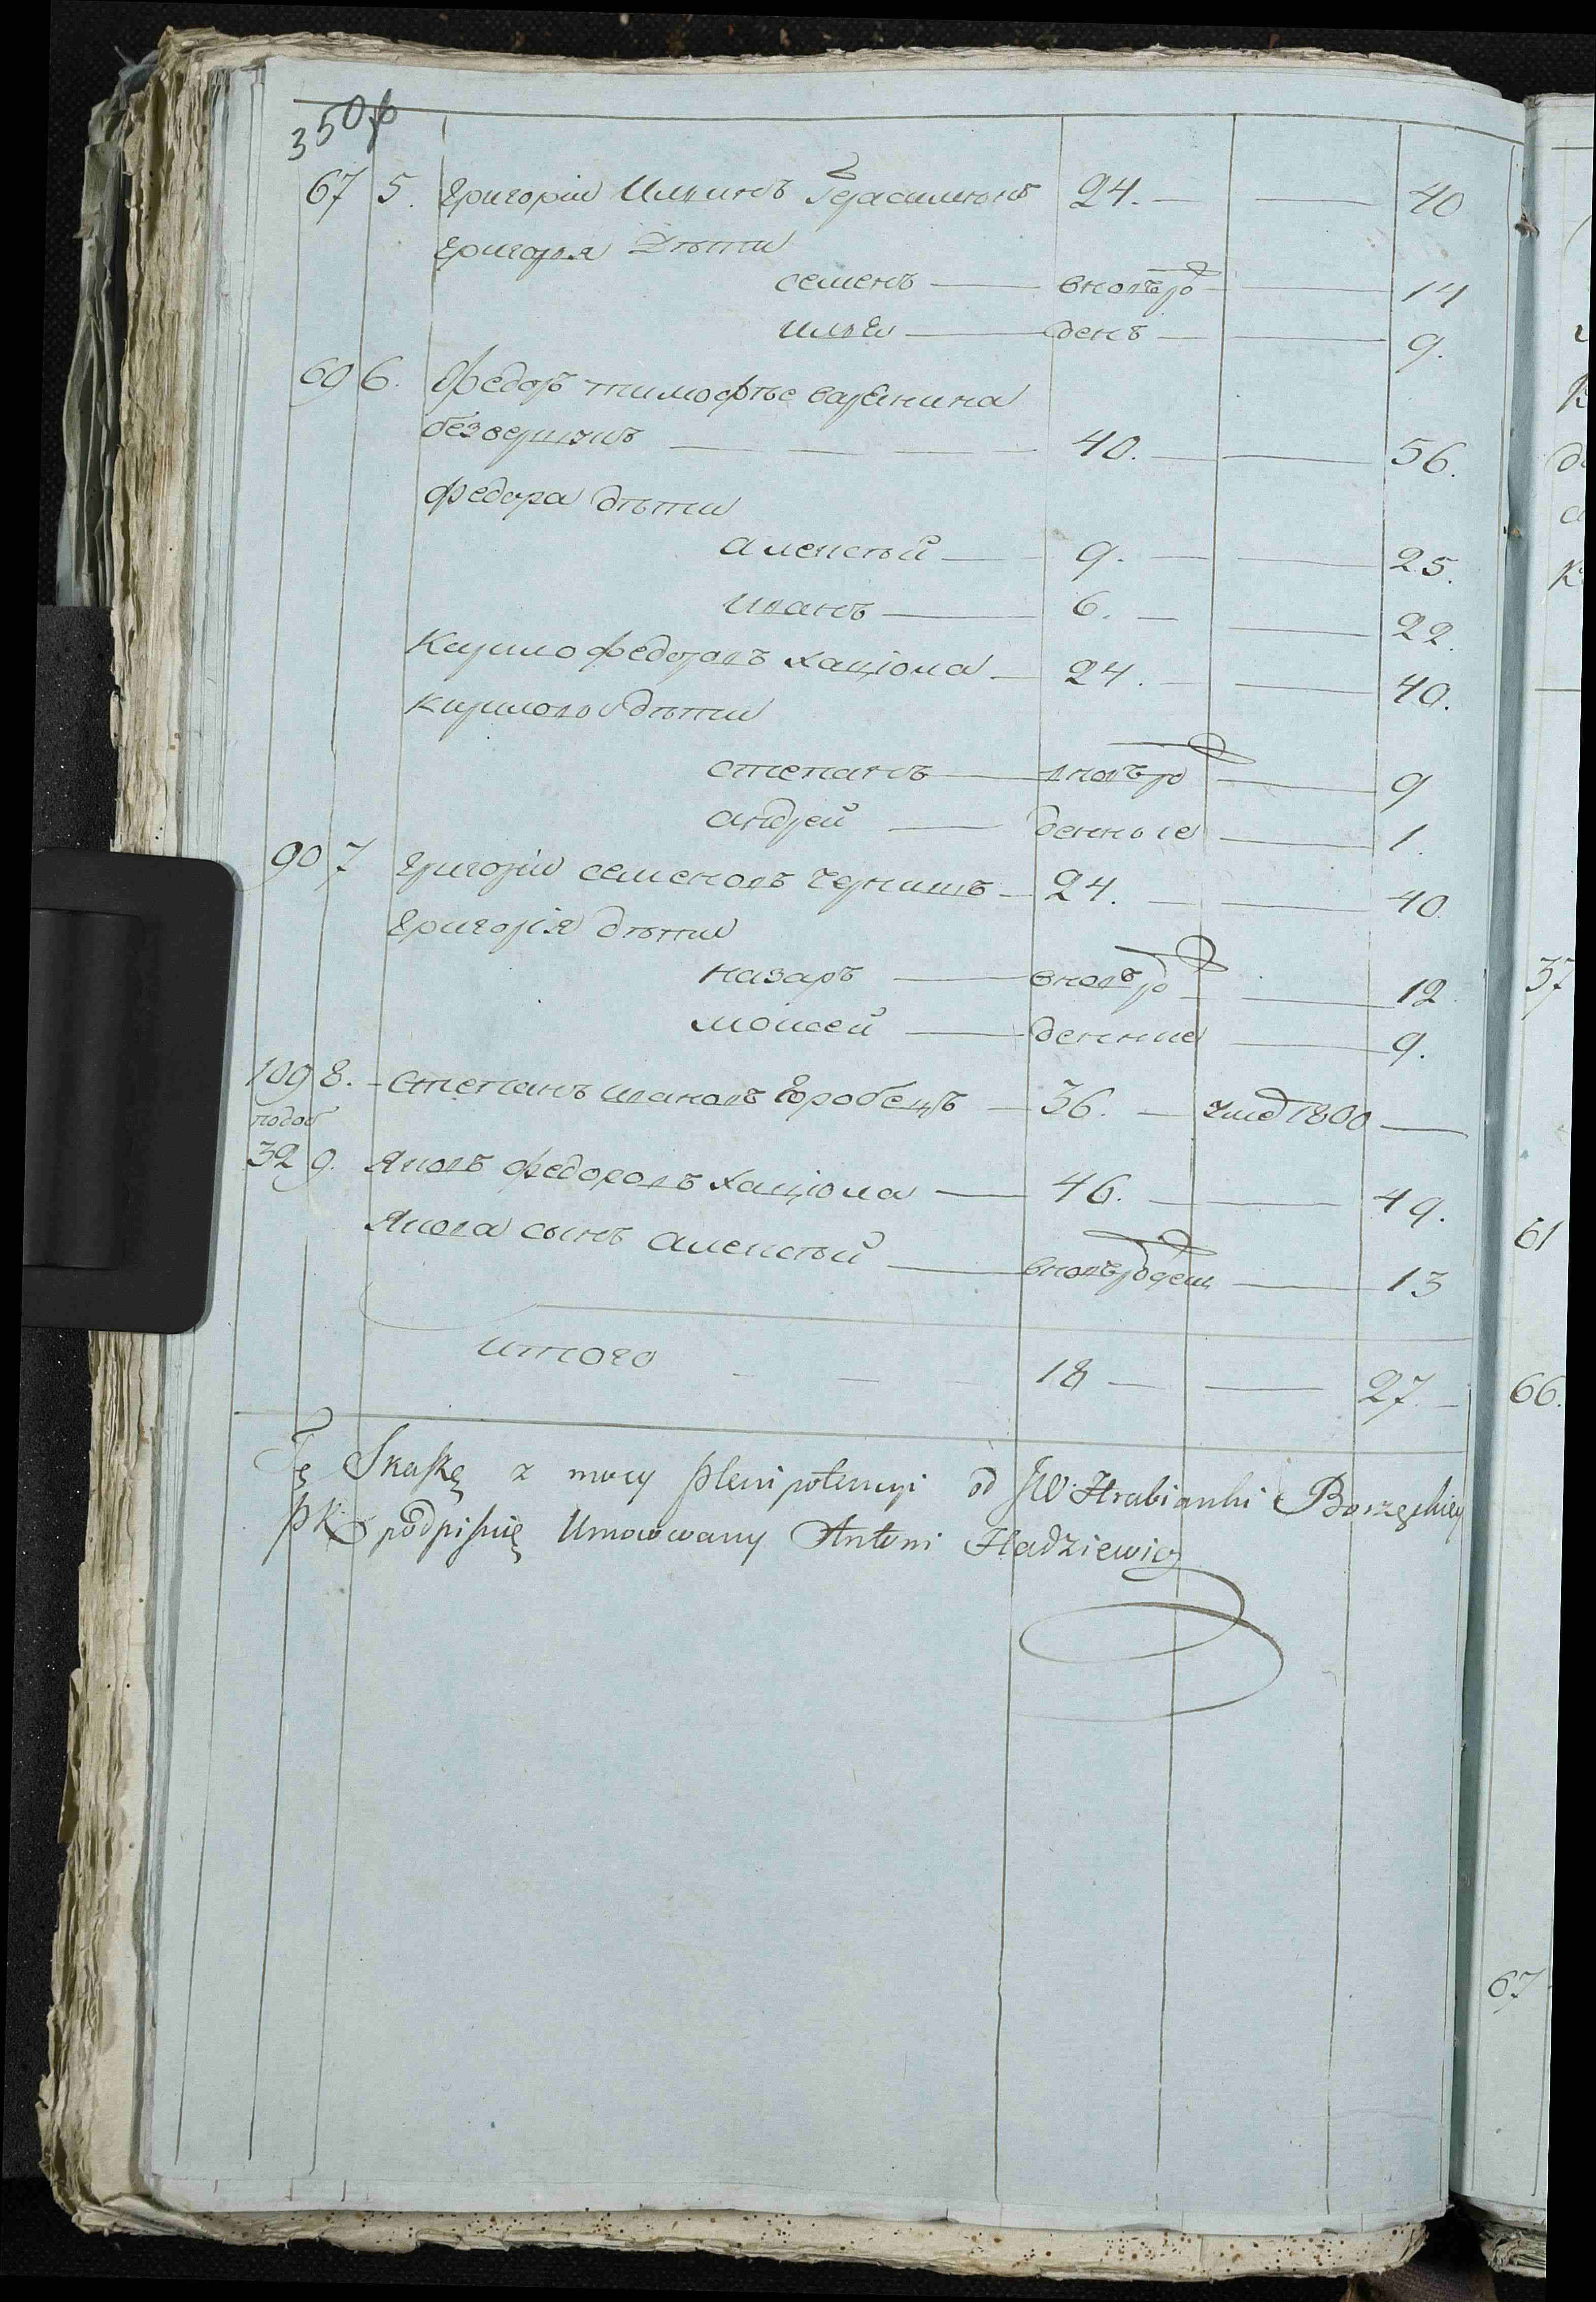 350
67 5. Григорій Илкинъ Герасимюкъ 24. — — 40
Григоря Дѣти
семенъ — вновьро — 14
илья — денъ — 9.
6. Федоръ тимофѣе
40. — — 56.
федора дѣти
алексѣй — 9. — — 25.
иванъ — 6. — — 22.
Кирило федоровъ хацюма — 24. — — 40.
кирилови дѣти
степанъ — вновьро — 9
андрей — денные — 1.
90 7 Григорій семеновъ чернишъ — 24. — — 40.
Григорія дѣти
назаръ — вновьро — 12
моисей — денние — 9.
109 8. степанъ ивановъ 36. — 1800 —
32 9. Яковъ федоровъ хацюма — 46. — — 49.
Якова сынъ алексѣй — — 13
итого — — — 18 — — 27. —
Tę Skaskę z mocy plenipotencyi od JW. Hrabianki Borzęckiey
podpisuię Umocowany Antoni Hadziewicz
37
61
66.
67